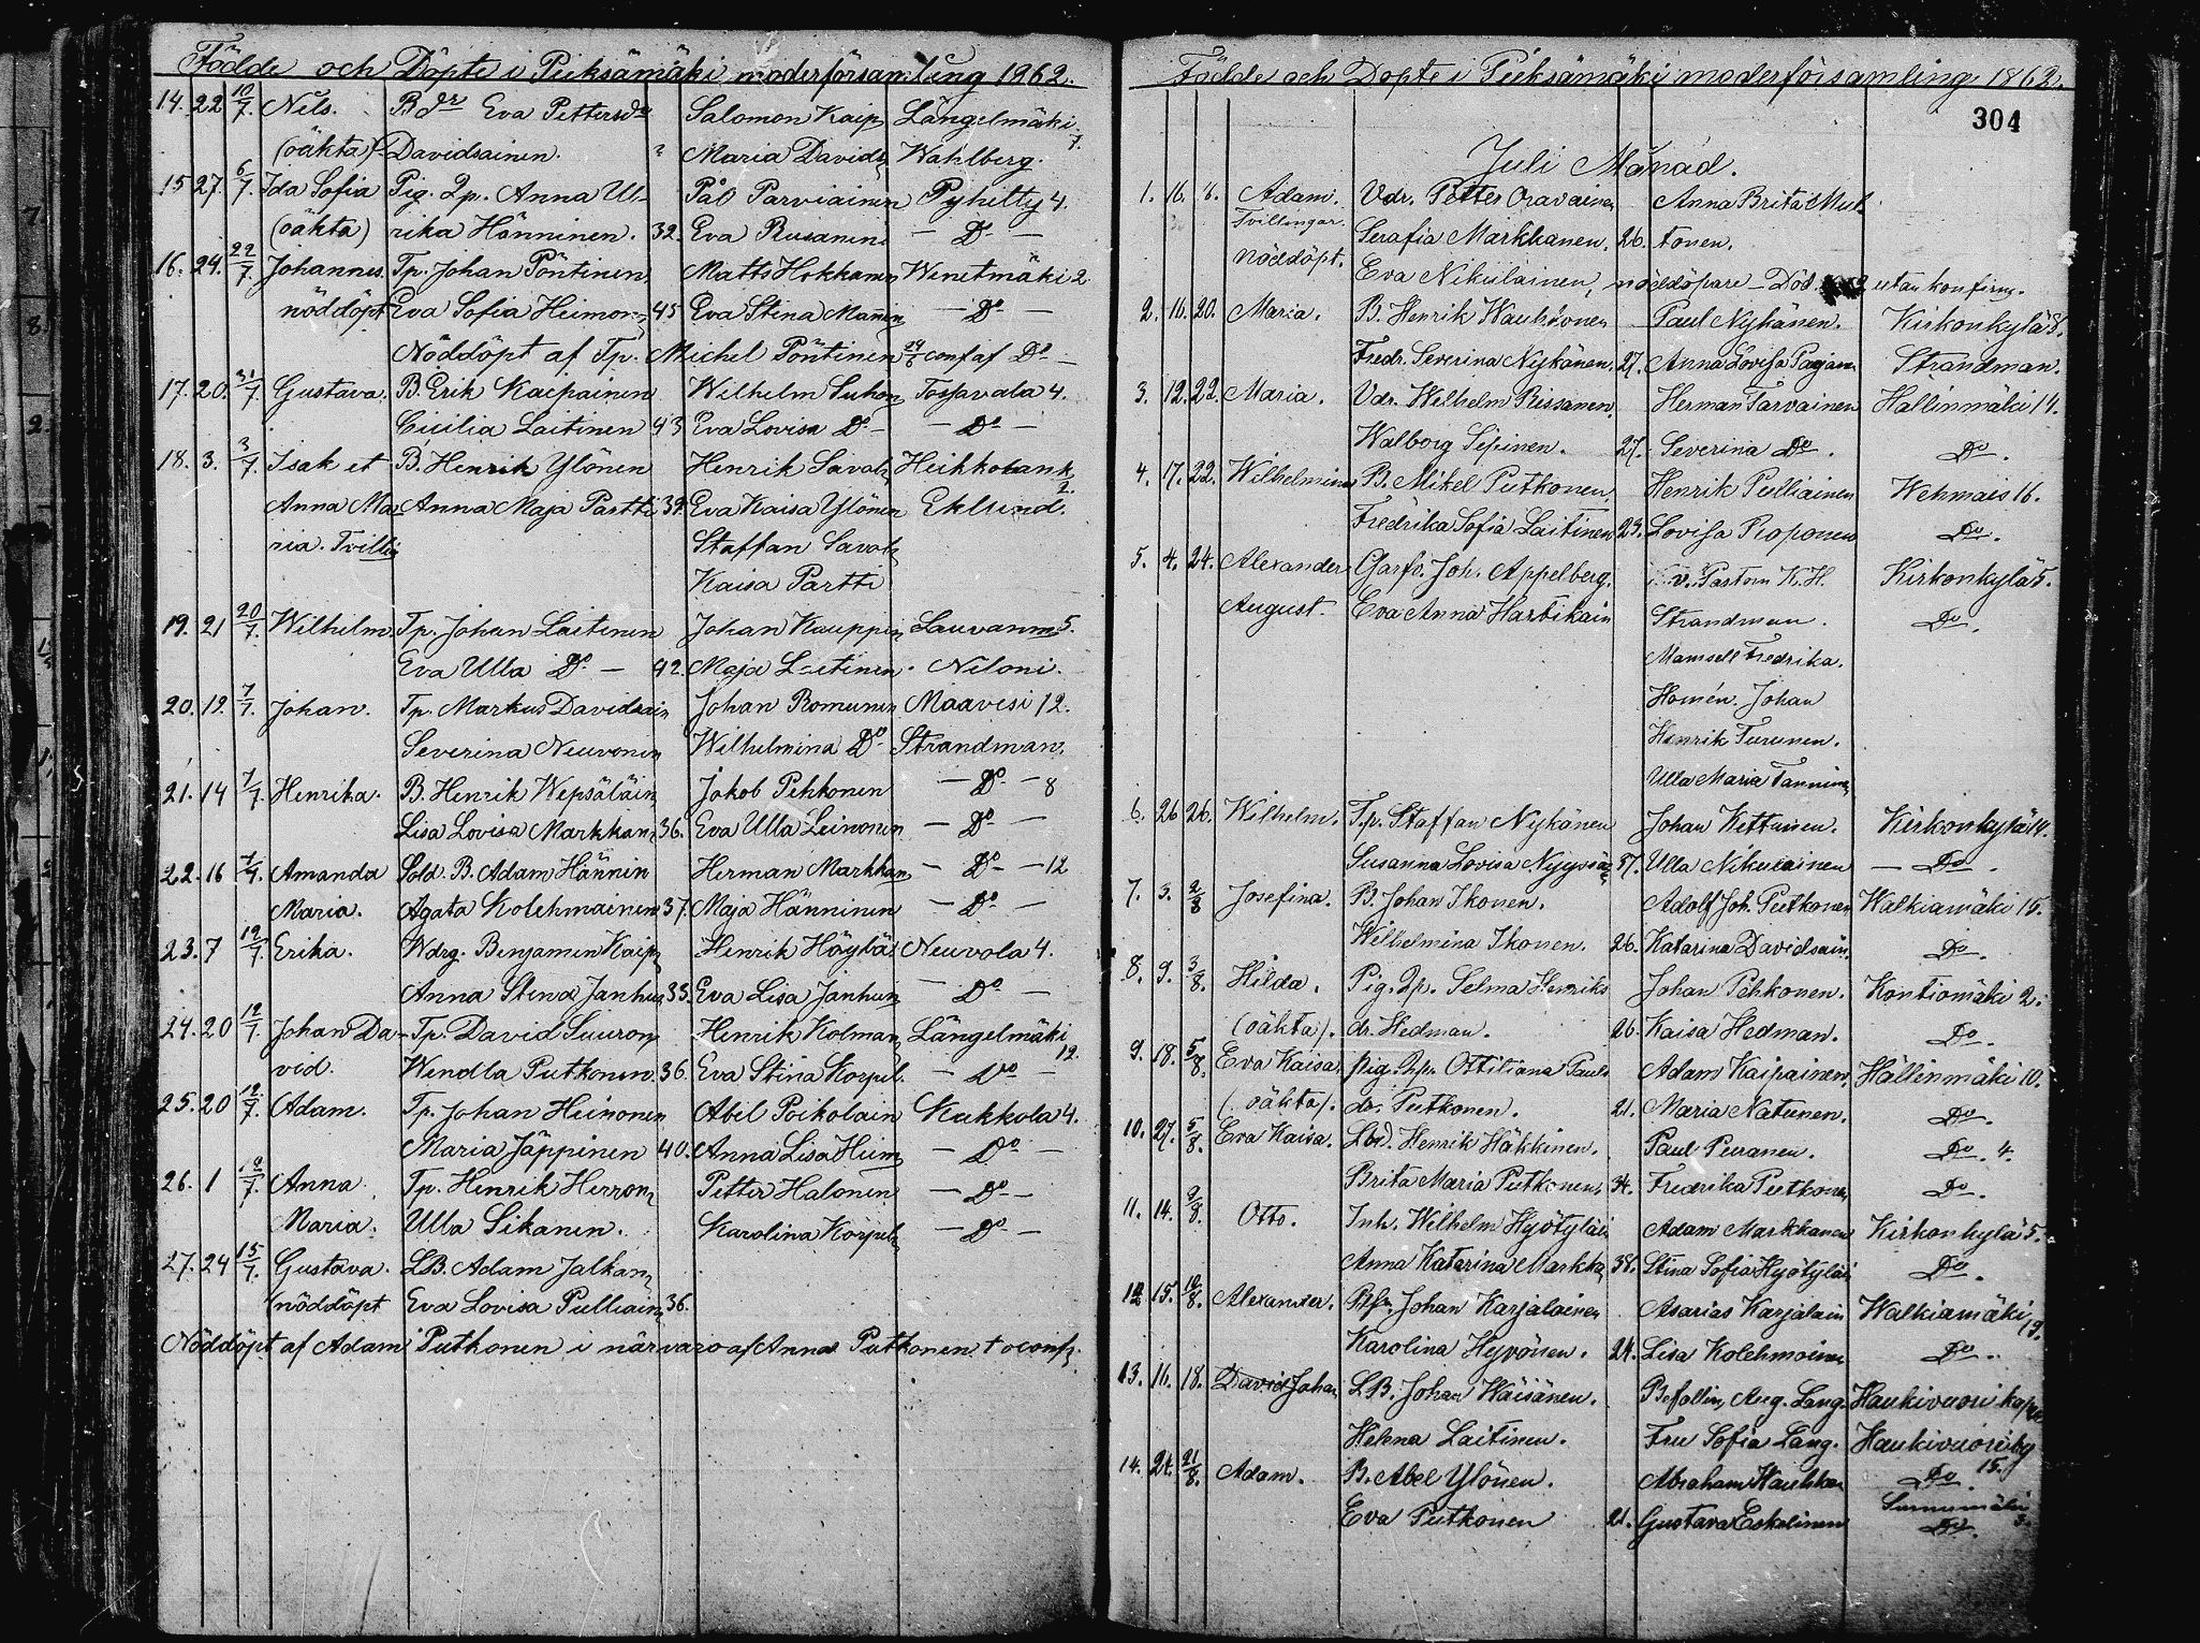 Födde och Döpte i Pieksämäki moderförsamling 1862.
14. 22 10/7. Nils. B.dr Eva Pettersdr Salomon Kaip Längelmäki 7.
(oäkta) Davidsainen. Maria Davids Wahlberg.
15 27. 6/7. Ida Sofia Pig. Qp. Anna Ul- Pål Parviainen Pyhitty 4.
(oäkta) rika Hänninen. 32. Eva Rusanini — Do —
16. 24. 22/7. Johannes. Tp. Johan Pöntinen, Matts Hokkanen Wenetmäki 2
nöddöpt Eva Sofia Heimon 45 Eva Stina Manin — Do —
Nöddöpt af Tp. Michel Pöntinen conf af Do —
17. 20. /7. Gustava. B. Erik Kaipainen Wilhelm Suhon Tossavala 4.
Cicilia Laitinen 43 Eva Lovisa Do — — Do —
18. 3. 3/7. Isak et B. Henrik Ylönen Henrik Savol Heikkolank 2.
Anna Ma- Anna Maja Partti 39. Eva Kaisa Ylönen Eklund.
ria. Tvilli Staffan Savol
Kaisa Partti
19. 21 20/7. Wilhelm. Tp. Johan Laitinen Johan Kauppin Lauvanm 5.
Eva Ulla Do — 42. Maja Laitinen. Niloni.
20. 12. 7/7. Johan. Tp. Markus Davidsain Johan Romunen Maavesi 12.
Severina Neuvonen Wilhelmina Do Strandman.
21. 14 7/7. Henrika. B. Henrik Wepsäläin Jakob Pehkonen — Do — 8
Lisa Lovisa Markkan 36. Eva Ulla Leinonen — Do —
22. 16 7/7. Amanda Sold. B. Adam Hännin Herman Markkan — Do — 12
Maria. Agata Kolehmainen 37. Maja Hänninen — Do —
23. 7 12/7. Erika. Wdrg. Benjamin Kaip Henrik Höylä Neuvola 4.
Anna Stina Janhun 33. Eva Lisa Janhun — Do —
24. 20 12/7. Johan Da- Tp. David Suuron Henrik Kolman Längelmäki
vid. Wendla Putkonen. 36. Eva Stina Korpil. — Do — 12.
25. 20 12/7. Adam. Tp. Johan Heinonen Abel Poikolain Kukkola 4.
Maria Jäppinen 40. Anna Lisa Heim — Do —
26. 1 /7. Anna Tp. Henrik Herron Petter Halonen — Do —
Maria. Ulla Sikanen. Karolina Korpel — Do —
27. 24 15/7. Gustava. LB. Adam Jalkan
(nöddöpt Eva Lovisa Pulliain 36.
Nöddöpt af Adam Putkonen i närvaro af Anna Putkonen † oconf.
Födde och Döpte i Pieksämäki moderförsamling 1862.
304
Juli Månad.
1. 16. 6. Adam. Vdr. Petter Oravainen Anna Brita Mut
Tvillingar. Serafia Markkanen. 26. tonen.
nöddöpt. Eva Nikulainen, nöddöpare — Död utan konfirm.
2. 16. 20. Maria. B. Henrik Hauhkonen Paul Nykänen. Kirkonkylä 8.
Fredr. Severina Nykänen. 27. Anna Lovisa Pagan Strandman.
3. 12. 22. Maria. Vdr. Wilhelm Rissanen. Herman Tarvainen Hällinmäki 14.
Walborg Sepinen. 27. Severina Do. Do.
4. 17. 22. Wilhelmina B. Mikel Putkonen. Henrik Pulliainen Wehmais 16.
Fredrika Sofia Laitinen 23. Lovisa Roponen Do.
5. 4. 24. Alexander Garfv. Joh. Appelberg. v. Pastorn K. H. Kirkonkylä 5.
August. Eva Anna Hartikain Strandman. Do.
Mamsell Fredrika.
Homén. Johan
Henrik Turunen.
Ulla Maria Tannine
6. 26 26. Wilhelm. T.p. Staffan Nykänen Johan Kettunen. Kirkonkylä 14.
Susanna Lovisa Nyyssö 37. Ulla Nikulainen — Do.
7. 3. 2/8 Josefina. B. Johan Ikonen. Adolf Joh. Putkonen Walkiamäki 15.
Wilhelmina Ikonen. 26. Katarina Davidsain. Do.
8. 9. 3/8. Hilda. Pig. Qp. Selma Henriks Johan Pehkonen. Kontiomäki 2.
(oäkta). dr. Hedman. 26 Kaisa Hedman. Do.
9. 18. 5/8. Eva Kaisa pig. Qp. Ottiliana Pauls Adam Kaipainen. Hällinmäki 10.
(oäkta). dr. Putkonen. 21. Maria Natunen. Do.
10. 27. 5/8. Eva Kaisa. Lbd. Henrik Häkkinen. Paul Peuranen. Do. 4.
Brita Maria Putkonen, 34. Fredrika Putkonen Do.
11. 14. 9/8. Otto. Inh. Wilhelm Hyötyläi Adam Markkanen Kirkonkylä 5.
Anna Katarina Markka 38. Stina Sofia Hyötyläi Do.
12 15. 10/8. Alexander. Johan Karjalainen Asarias Karjalain Walkiamäki 9.
Karolina Hyvönen. 24. Lisa Kolehmainen Do.
13. 16. 18. David Johan LB. Johan Häisänen. Befallm. Aug. Lang. Haukivuori kap
Helena Laitinen. Fru Sofia Lang. Haukivuori by
14. 24. 21/8. Adam. B. Abel Ylönen. Abraham Hauhkon Do. 15.
Eva Putkonen 21. Gustava Eskelinen Do. 3.